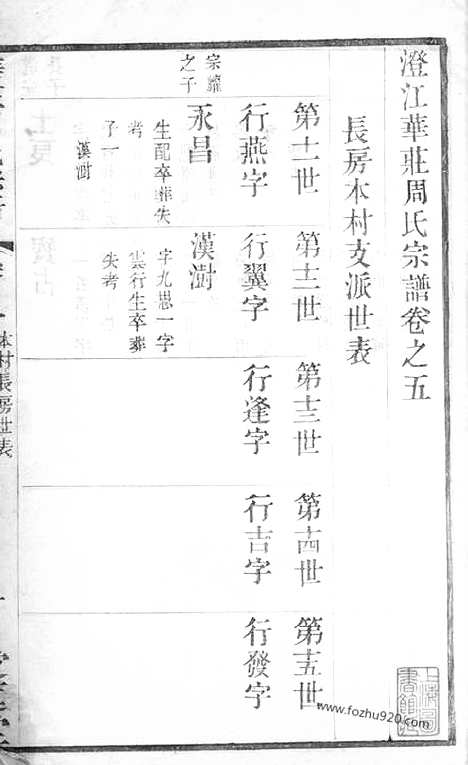 澄江華莊周氏宗譜卷之五
長房本村支派世表
第十一世
第十二世
第十三世
第十四世
第十五世
行燕字
行翼字
行逢字
行吉字
行發字
宗
之子
永昌
生配卒葬失
考
子一
漢澍
漢澍
字九思一字
雲行生卒葬
失考
本村長房世表
上海圖
書館藏
www.fozhu920.com